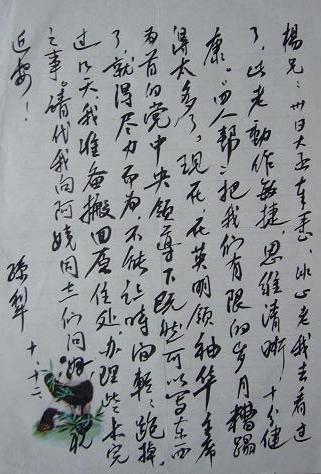 楊兄：卅日大函奉悉，冰心老我去看过
了，此老動作敏捷，思维清晰，十分健
康。“四人帮”把我们有限的岁月糟蹋
得太多了。现在在英明领袖华主席
为首的党中央领导下既然可以写东西
了，就得尽力而为，不能让時间轻轻跑掉。
过几天，我准备搬回原住处，办理些未完
之事。请代我向阿姨同志们问好，祝
近安！
孫犁
十、十二、